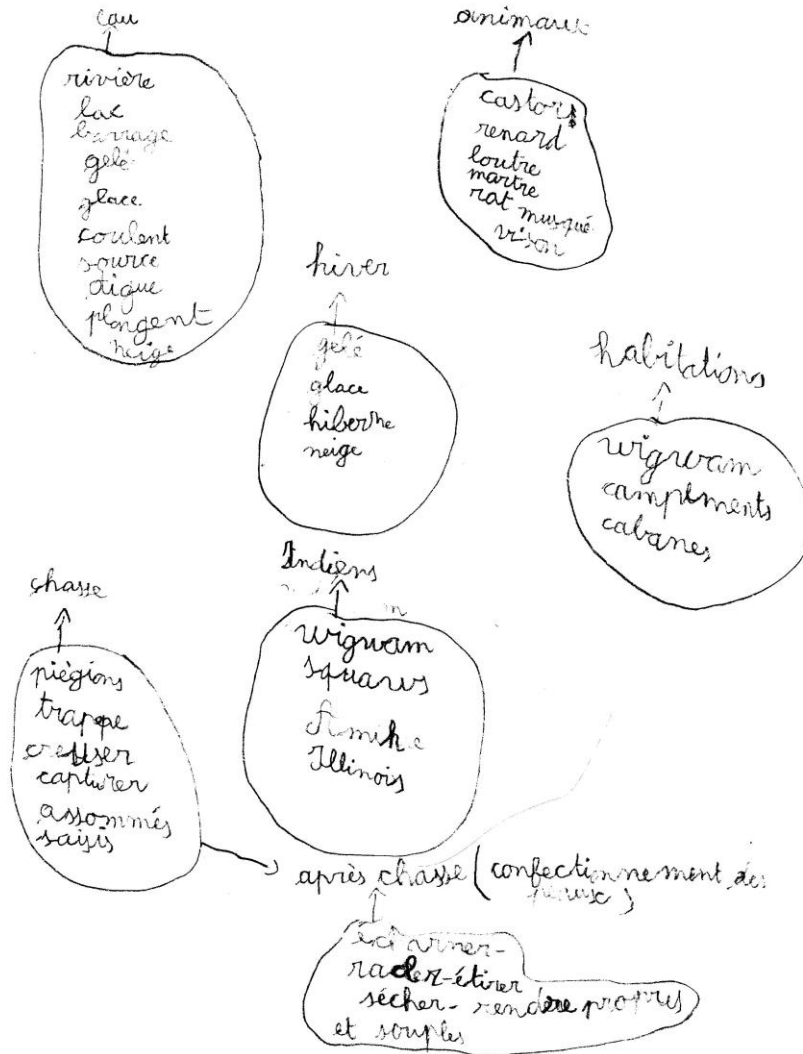 eau
rivière
lac
barrage
gelé
glace
coulent
source
digue
plongent
neige
animaux
castors
renard
loutre
martre
rat musqué
vison
hiver
gelé
glace
hiberne
neige
habitations
wigwam
campements
cabanes
chasse
piégions
trappe
creuser
capturer
assommés
saisis
Indiens
wigwam
squaws
Amik
Illinois
après chasse (confectionnement des
peaux)
écharner-
racler-étirer
sécher-rendre propres
et souples